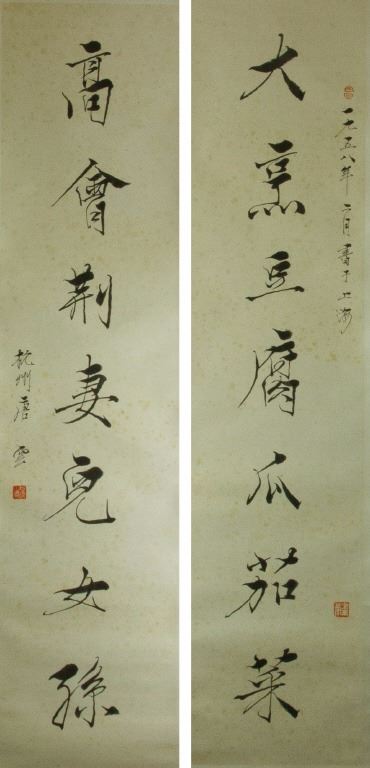 一九五八年二月書于上海
大烹豆腐瓜茄菜
高會荆妻兒女孫
杭州唐雲